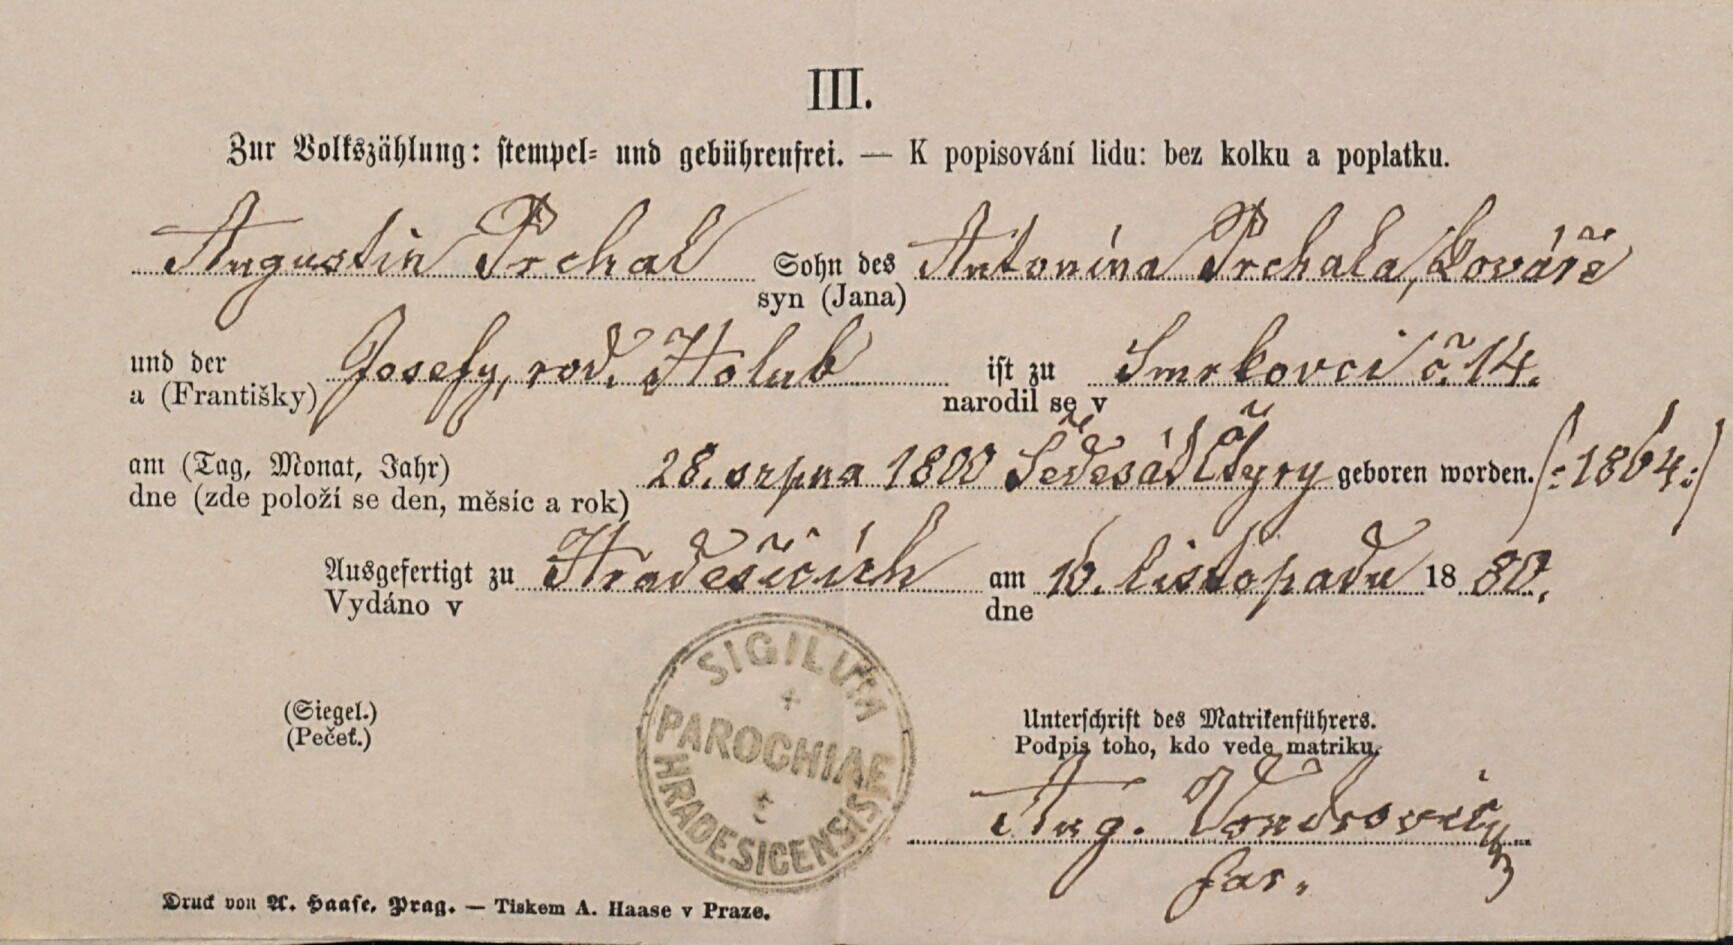 III.
Zur Volkszählung: stempel- und gebührenfrei. — K popisování lidu: bez kolku a poplatku.
Augustin Prchal Sohn des Antonína Prchala, kováře
syn (Jana)
und der Josefy, rod. Holub ist zu Smrkovci č. 14.
a (Františky) narodil se v
am (Tag, Monat, Jahr) 28. srpna 1800 Šedesát Čtyry geboren worden. /:1864:/
dne (zde položí se den, měsíc a rok)
Ausgefertigt zu Hradešicích am 16. listopadu 1880.
Vydáno v dne
SIGILUM
PAROCHIAE
HRADESICENSIS
(Siegel.) Unterschrift des Matrikenführers.
(Pečeť.) Podpis toho, kdo vede matriku.
Aug.
far.
Druck von A. Haase, Prag. — Tiskem A. Haase v Praze.